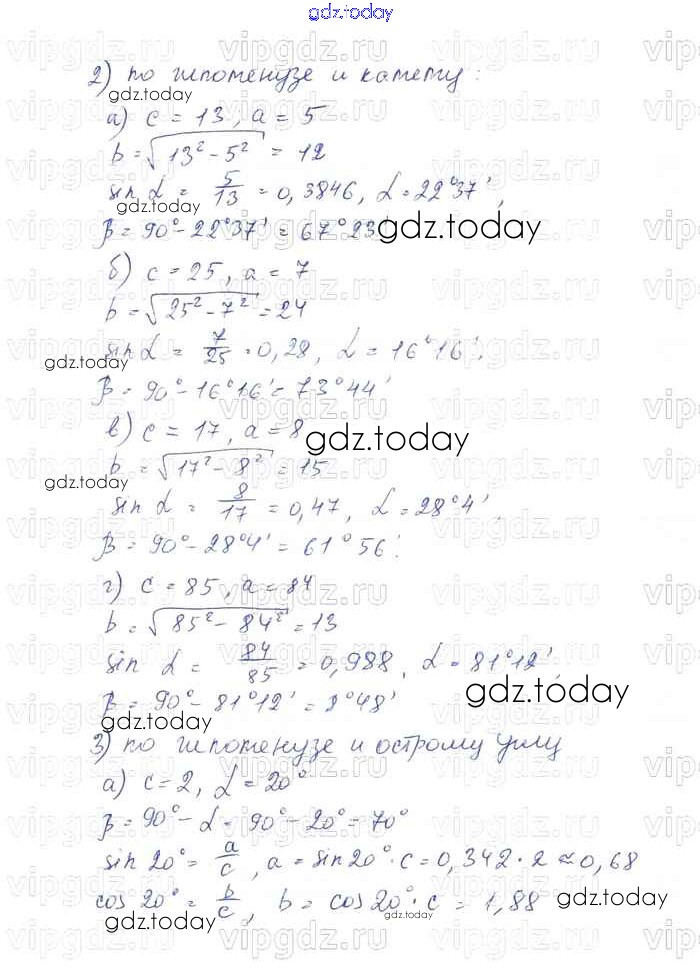 gdz.today
2) по гипотенузе и катету:
gdz.today
а) c = 13, a = 5
b = √13² - 5² = 12
sin α = 5/13 = 0,3846, α = 22°37',
gdz.today
β = 90° - 22°37' = 67°23'
gdz.today
б) c = 25, a = 7
b = √25² - 7² = 24
sin α = 7/25 = 0,28, α = 16°16'.
gdz.today
β = 90° - 16°16' = 73°44'
в) c = 17, a = 8
gdz.today
b = √17² - 8² = 15
gdz.today
sin α = 8/17 = 0,47, α = 28°4'.
β = 90° - 28°4' = 61°56'.
г) c = 85, a = 84
b = √85² - 84² = 13
sin α = 84/85 = 0,988, α = 81°12'.
β = 90° - 81°12' = 8°48'
gdz.today
gdz.today
3) по гипотенузе и острому углу
а) c = 2, α = 20°
β = 90° - α = 90° - 20° = 70°
sin 20° = a/c, a = sin 20° · c = 0,342 · 2 ≈ 0,68
gdz.today
cos 20° = b/c, b = cos 20° · c = 1,88
gdz.today
gdz.today
gdz.today
vipgdz.ru